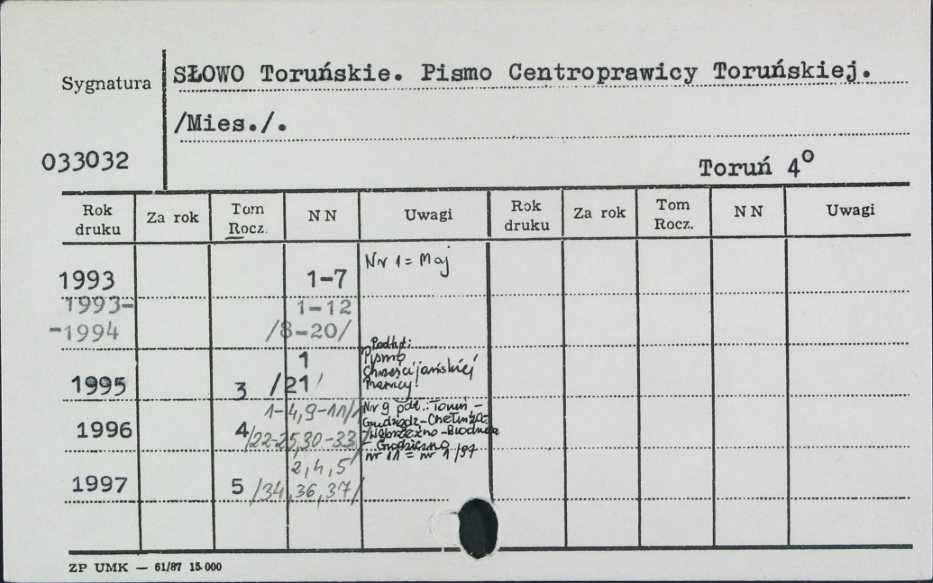 Sygnatura
SŁOWO Toruńskie. Pismo Centroprawicy Toruńskiej.
/Mies./.
033032
Toruń 4°
Rok druku Za rok Tom Rocz. NN Uwagi Rok druku Za rok Tom Rocz. NN Uwagi
1993 1-7 Nr 1 = Maj
1993- 1-12
-1994 /8-20/
Podtyt:
1 Pismo
Chrześcijańskiej
1995 3 /21/ Prawicy!
1-4,9-11/ Nr 9 pdt.: Toruń -
Grudziądz-Chełmża-
1996 4 /22-25,30-33/ /Wąbrzeźno-Brodnica
- Grodziczno
nr 11 = nr 1/97
2,4,5
1997 5 /34,36,37/
ZP UMK — 61/87 15.000